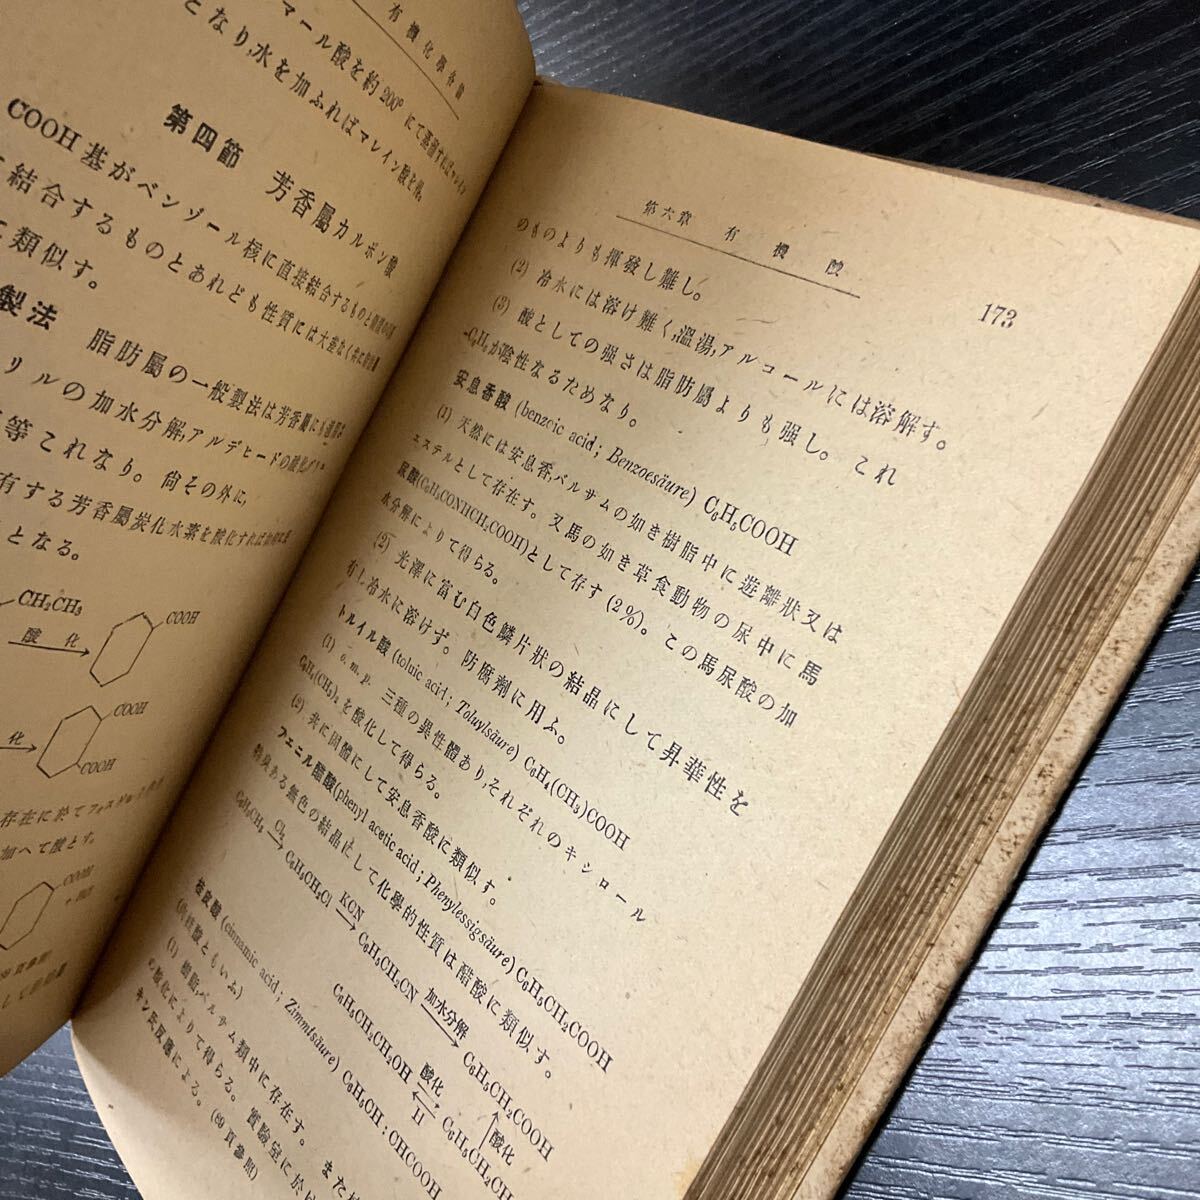 有機化學各論
マール酸を約200°にて蒸溜すれば
となり,水を加ふればマレイン酸を得。
第四節 芳香屬カルボン酸
COOH基がベンゾール核に直接結合するものと
結合するものとあれども性質には大差なく共に
に類似す。
製法 脂肪屬の一般製法は芳香屬にも
リルの加水分解,アルデヒードの酸化
等これなり。 尙その外に,
有する芳香屬炭化水素を酸化すれば
となる。
CH2CH3
酸化
COOH
化
COOH
COOH
存在に於て
加へて酸とす。
COOH
第六章 有機酸
173
のものよりも揮發し難し。
(2) 冷水には溶け難く,溫湯,アルコールには溶解す。
(3) 酸としての强さは脂肪屬よりも强し。 これ
-C6H5が陰性なるためなり。
安息香酸 (benzoic acid; Benzoesäure) C6H5COOH
(1) 天然には安息香,バルサムの如き樹脂中に遊離狀又は
エステルとして存在す。 又馬の如き草食動物の尿中に馬
尿酸(C6H5CONHCH2COOH)として存す(2%)。 この馬尿酸の加
水分解によりて得らる。
(2) 光澤に富む白色鱗片狀の結晶にして昇華性を
有し冷水に溶けず。 防腐劑に用ふ。
トルイル酸 (toluic acid; Toluylsäure) C6H4(CH3)COOH
(1) o. m. p. 三種の異性體あり,それぞれのキシロール
C6H4(CH3)2を酸化して得らる。
(2) 共に固體にして安息香酸に類似す。
フェニル醋酸(phenyl acetic acid; Phenylessigsäure) C6H5CH2COOH
臭ある無色の結晶にして化學的性質は醋酸に類似す。
C6H5CH3 Cl2→ C6H5CH2Cl KCN→ C6H5CH2CN 加水分解→ C6H5CH2COOH
↑酸化
C6H5CH2CH2OH 酸化 H C6H5CH2CH
桂皮酸 (cinnamic acid; Zimmtsäure) C6H5CH:CHCOOH
(桂酸ともいふ)
(1) 樹脂,バルサム類中に存在す。 また
の酸化によりて得らる。 實驗室に於
キン氏反應による。 (89頁參照)